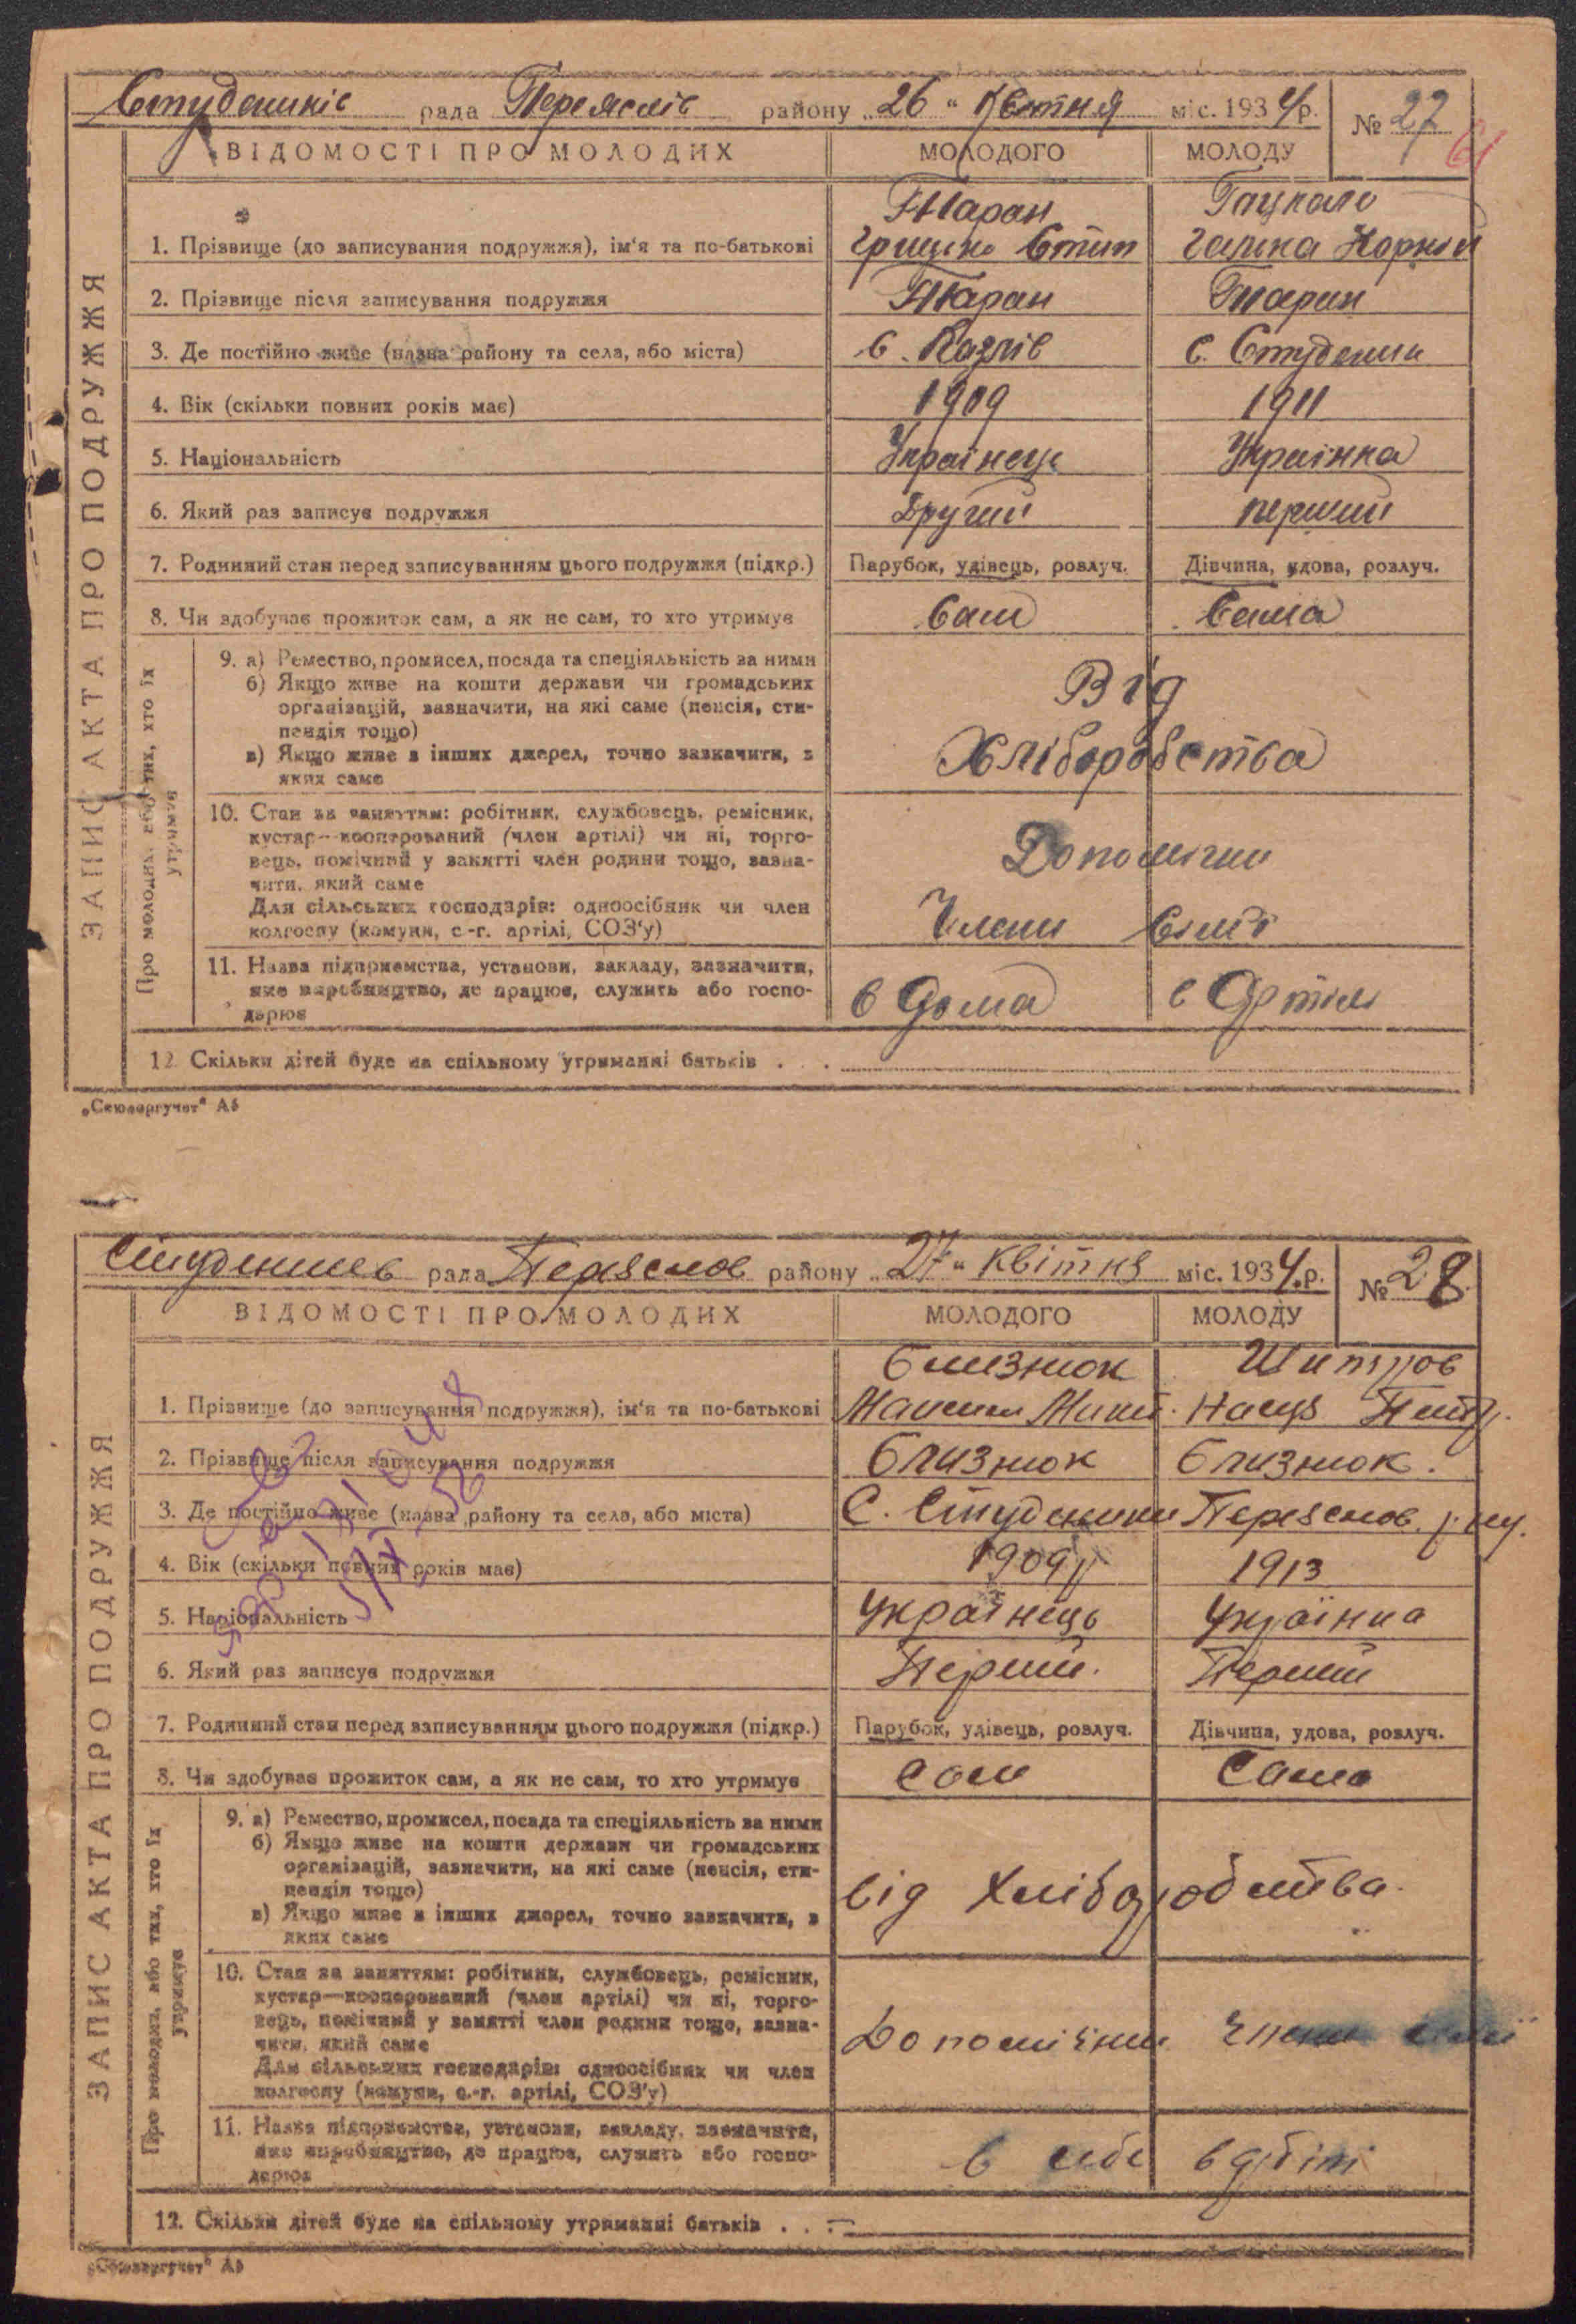 Студеників рада Переяслів району „26" Квітня міс. 1934 р. № 27
61
ВІДОМОСТІ ПРО МОЛОДИХ МОЛОДОГО МОЛОДУ
ЗАПИС АКТА ПРО ПОДРУЖЖЯ
Таран
1. Прізвище (до записування подружжя), ім'я та по-батькові Грицько Степ Галька Корній
2. Прізвище після записування подружжя Таран Таран
3. Де постійно живе (назва району та села, або міста) С. Козлів С. Студеники
4. Вік (скільки повних років має) 1909 1911
5. Національність Українець Українка
6. Який раз записує подружжя Другий перший
7. Родинний стан перед записуванням цього подружжя (підкр.) Парубок, удівець, розлуч. Дівчина, удова, розлуч.
8. Чи здобуває прожиток сам, а як не сам, то хто утримує Сам Сама
Про молодих, або тих, хто їх
утримує
9. а) Ремество, промисел, посада та спеціяльність за ними
б) Якщо живе на кошти держави чи громадських
організацій, зазначити, на які саме (пенсія, сти-
пендія тощо)
в) Якщо живе з інших джерел, точно зазначити, з
яких саме
Від
Хліборобства
10. Стан за заняттям: робітник, службовець, ремісник,
кустар—кооперований (член артілі) чи ні, торго-
вець, помічний у занятті член родини тощо, зазна-
чити, який саме
Для сільських господарів: одноосібник чи член
колгоспу (комуни, с.-г. артілі, СОЗ'у)
Допомічни
Члени Сімї
11. Назва підприємства, установи, закладу, зазначити,
яке виробництво, де працює, служить або госпо-
дарює
в дома в Артілі
12. Скільки дітей буде на спільному утриманні батьків . . .
„Союзоргучет" А5
Студеників рада Переяслов району „27" Квітня міс. 1934 р. № 28
ВІДОМОСТІ ПРО МОЛОДИХ МОЛОДОГО МОЛОДУ
ЗАПИС АКТА ПРО ПОДРУЖЖЯ
Близнюк
1. Прізвище (до записування подружжя), ім'я та по-батькові Максим Микит. Настя Петр.
2. Прізвище після записування подружжя Близнюк Близнюк.
3. Де постійно живе (назва району та села, або міста) С. Студеники Переяслов. р-ну.
4. Вік (скільки повних років має) 1909р 1913
5. Національність Українець Українка
6. Який раз записує подружжя Перший. Перший
7. Родинний стан перед записуванням цього подружжя (підкр.) Парубок, удівець, розлуч. Дівчина, удова, розлуч.
8. Чи здобуває прожиток сам, а як не сам, то хто утримує Сам Сама
Про молодих, або тих, хто їх
утримує
9. а) Ремество, промисел, посада та спеціяльність за ними
б) Якщо живе на кошти держави чи громадських
організацій, зазначити, на які саме (пенсія, сти-
пендія тощо)
в) Якщо живе з інших джерел, точно зазначити, з
яких саме
від Хліборобства.
10. Стан за заняттям: робітник, службовець, ремісник,
кустар—кооперований (член артілі) чи ні, торго-
вець, помічний у занятті член родини тощо, зазна-
чити, який саме
Для сільських господарів: одноосібник чи член
колгоспу (комуни, с.-г. артілі, СОЗ'у)
Допомічни члени сімї
11. Назва підприємства, установи, закладу, зазначити,
яке виробництво, де працює, служить або госпо-
дарює
в себе
12. Скільки дітей буде на спільному утриманні батьків . . . —
„Союзоргучет" А5